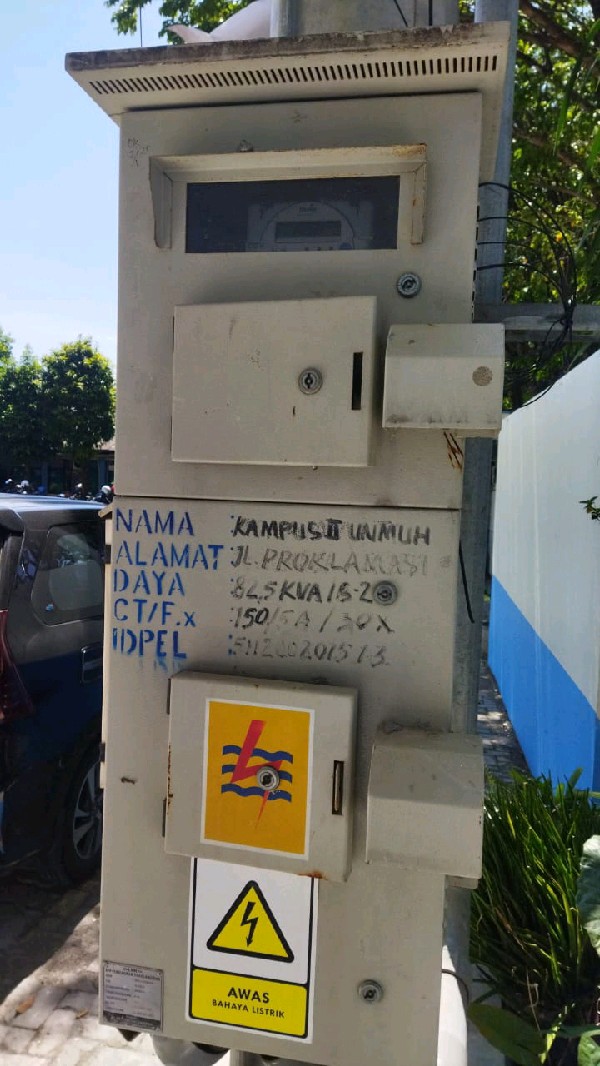 NAMA : KAMPUS II UNMUH
ALAMAT : JL. PROKLAMASI
DAYA : 82,5 KVA / S-2
CT/F.x : 150/5A / 30X
IDPEL
AWAS
BAHAYA LISTRIK